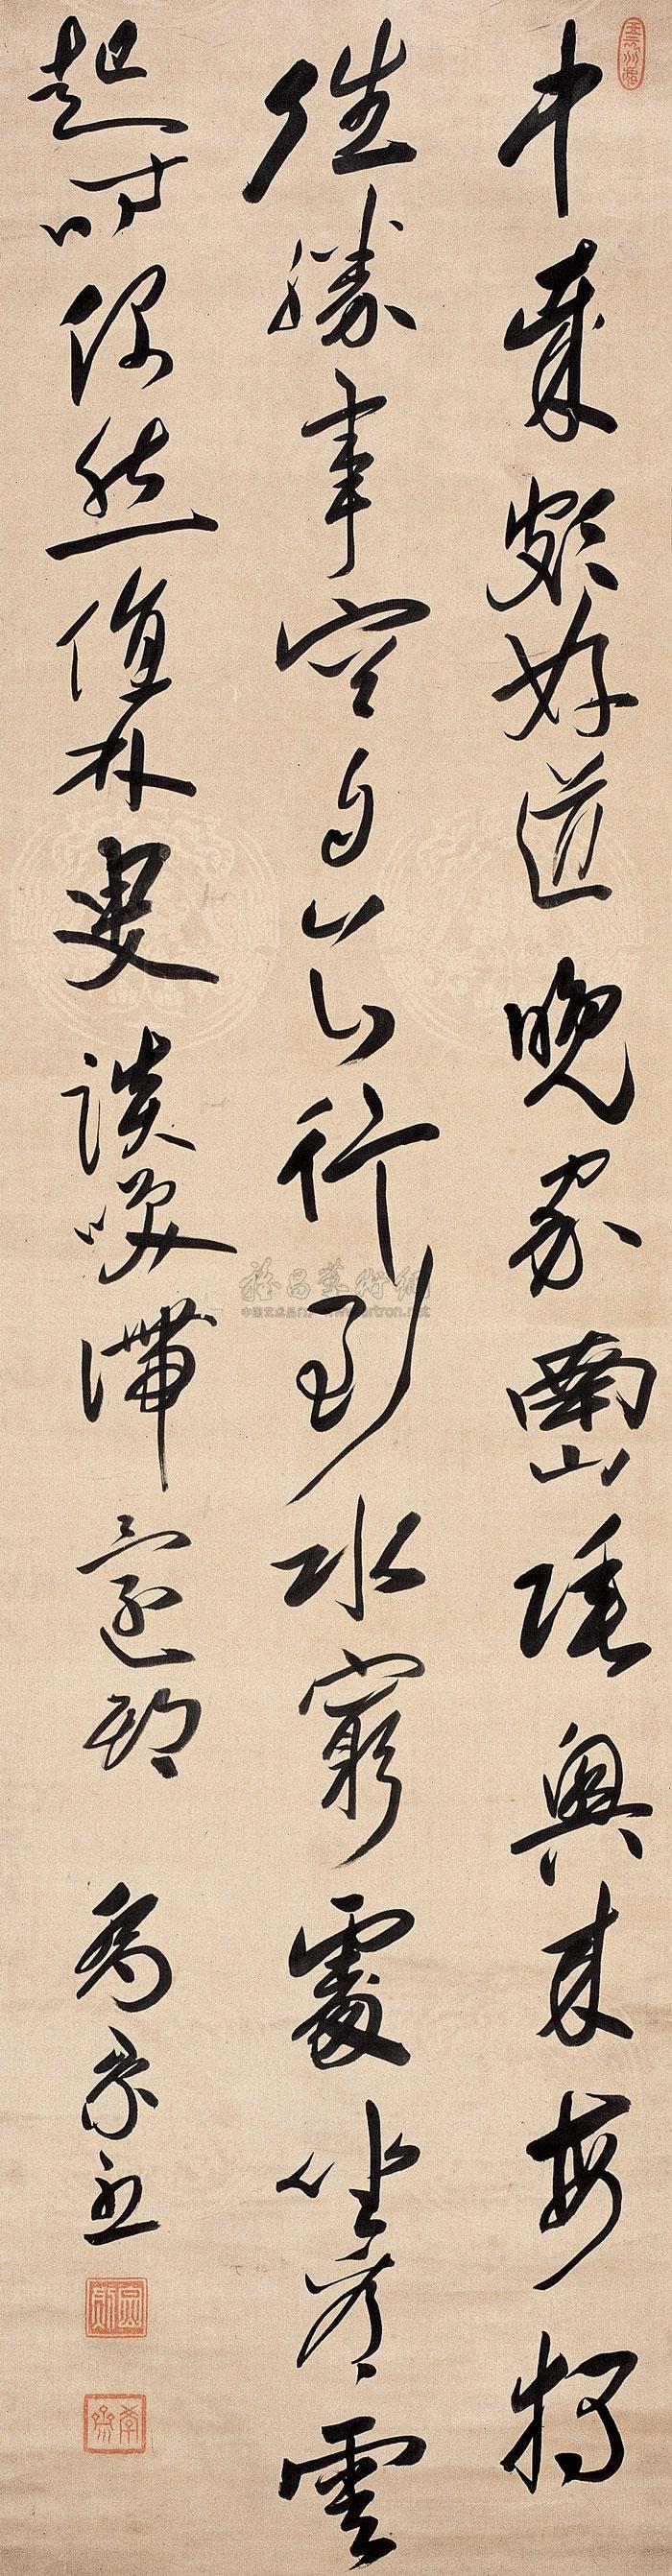 中歲頗好道晚家南山陲興來每獨
往勝事空自知行到水窮處坐看雲
起時偶然值林叟談笑滯還期
雅昌藝術網
artron.net